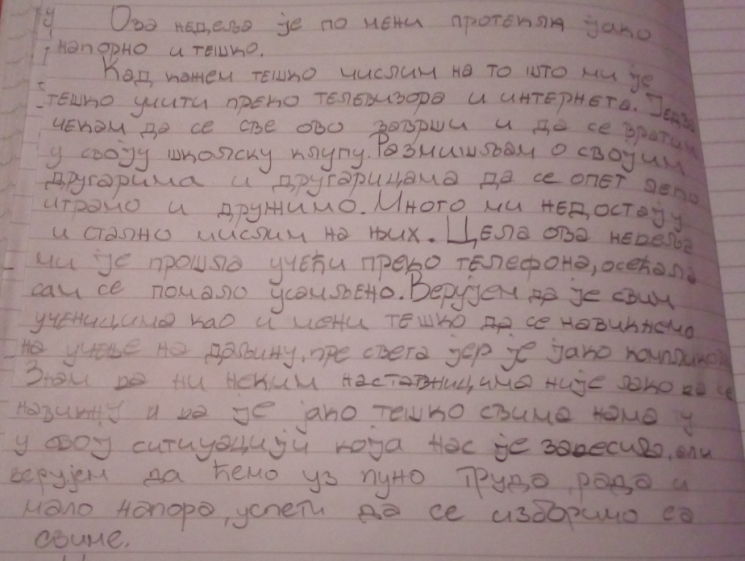 Ова недеља је по мени протекла јако
напорно и тешко.
Кад кажем тешко мислим на то што ми је
тешко учити преко телевизора и интернета. Једва
чекам да се све ово заврши и да се вратим
у своју школску клупу. Размишљам о својим
другарима и другарицама да се опет лепо
играмо и дружимо. Много ми недостају
и стално мислим на њих. Цела ова недеља
ми је прошла учећи преко телефона, осећала
сам се помало усамљено. Верујем да је свим
ученицима као и мени тешко да се навикнемо
на учење на даљину, пре свега јер је јако
Знам да ни неким наставницима није лако да се
навикну и да је јако тешко свима нама у
у овој ситуацији која нас је задесила, али
верујем да ћемо уз пуно труда, рада и
мало напора, успети да се изборимо са
свиме.